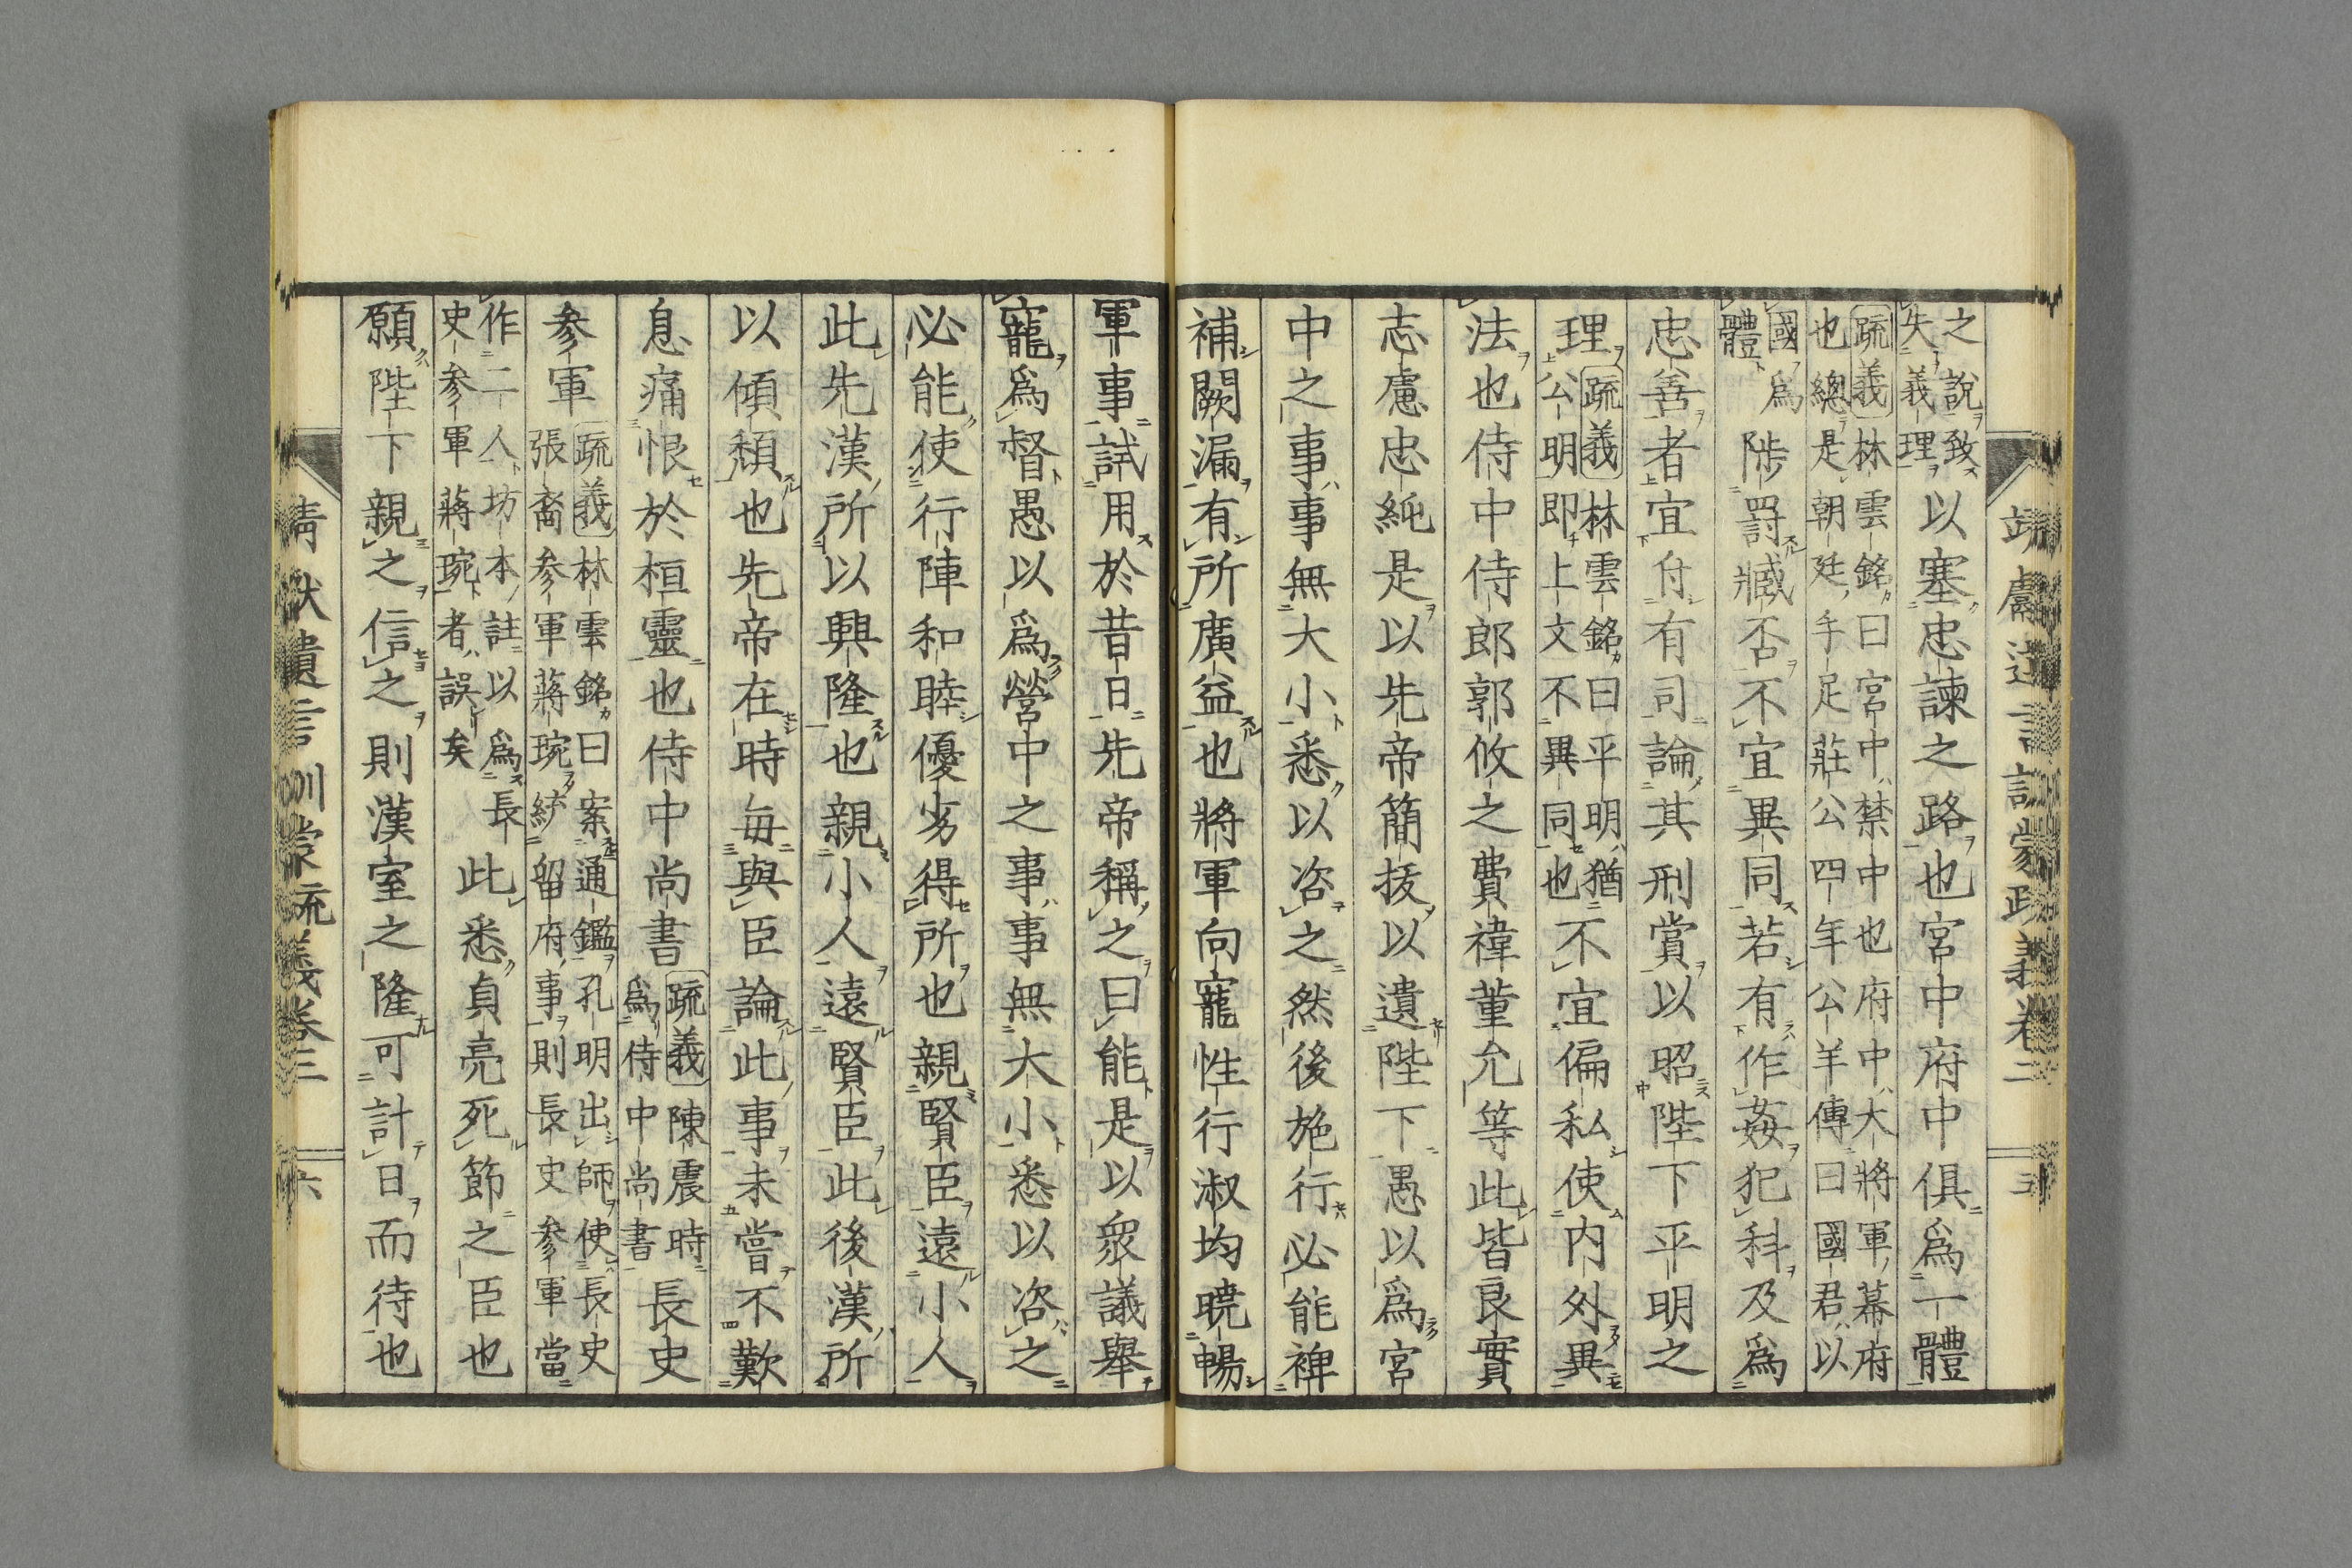 之說致
失義理
以塞忠諫之路也宮中府中俱爲一體
疏義林雲銘曰宮中禁中也府中大將軍幕府
也總是朝廷手足莊公四年公羊傳曰國君以
國爲
體
陟罰臧否不宜異同若有作姦犯科及爲
忠善者宜付有司論其刑賞以昭陛下平明之
理
疏義林雲銘曰平明猶
公明即上文不異同也
不宜偏私使内外異
法也侍中侍郎郭攸之費禕董允等此皆良實
志慮忠純是以先帝簡拔以遺陛下愚以爲宮
中之事事無大小悉以咨之然後施行必能裨
補闕漏有所廣益也將軍向寵性行淑均曉暢
軍事試用於昔日先帝稱之曰能是以衆議舉
寵爲督愚以爲營中之事事無大小悉以咨之
必能使行陣和睦優劣得所也親賢臣遠小人
此先漢所以興隆也親小人遠賢臣此後漢所
以傾頹也先帝在時毎與臣論此事未嘗不歎
息痛恨於桓靈也侍中尚書
疏義陳震時
爲侍中尚書
長史
參軍
疏義林雲銘曰案通鑑孔明出師使長史
張裔參軍蔣琬統留府事則長史參軍當
作二人坊本註以爲長
史參軍蔣琬者誤矣
此悉貞亮死節之臣也
願陛下親之信之則漢室之隆可計日而待也
遺言訓蒙疏義卷三
六